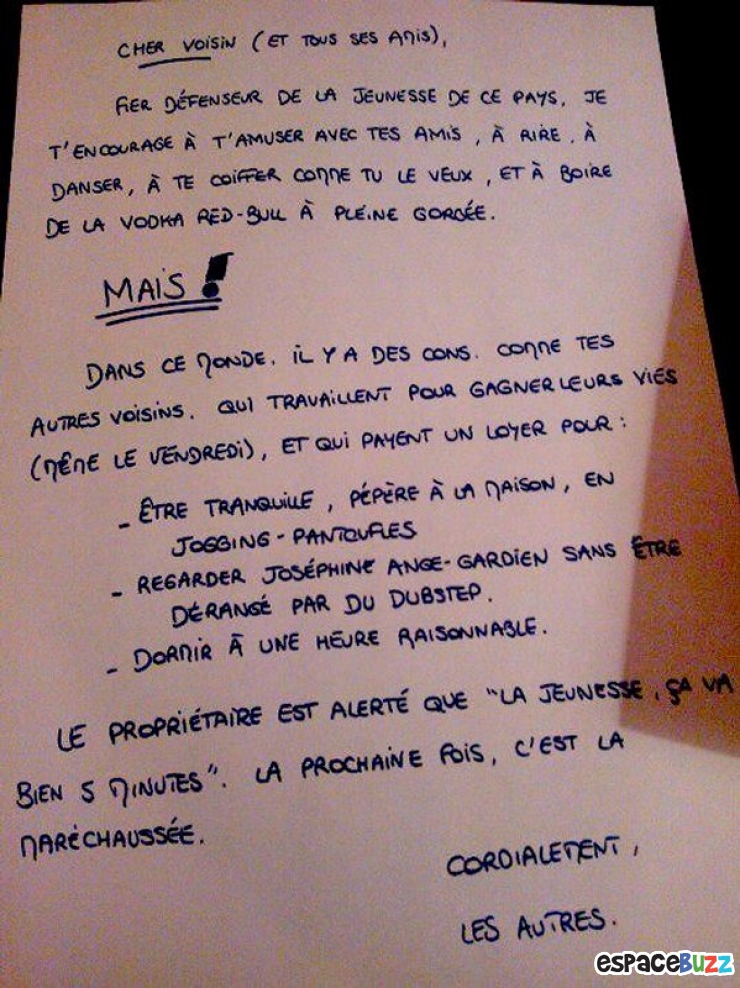 CHER VOISIN (ET TOUS SES AMIS),
FIER DÉFENSEUR DE LA JEUNESSE DE CE PAYS, JE
T'ENCOURAGE À T'AMUSER AVEC TES AMIS, À RIRE, À
DANSER, À TE COIFFER COMME TU LE VEUX, ET À BOIRE
DE LA VODKA RED-BULL À PLEINE GORGÉE.
MAIS !
DANS CE MONDE, IL Y A DES CONS, COMME TES
AUTRES VOISINS, QUI TRAVAILLENT POUR GAGNER LEURS VIES
(MÊME LE VENDREDI), ET QUI PAYENT UN LOYER POUR :
- ÊTRE TRANQUILLE, PÉPÈRE À LA MAISON, EN
JOGGING-PANTOUFLES
- REGARDER JOSÉPHINE ANGE-GARDIEN SANS ÊTRE
DÉRANGÉ PAR DU DUBSTEP.
- DORMIR À UNE HEURE RAISONNABLE.
LE PROPRIÉTAIRE EST ALERTÉ QUE "LA JEUNESSE, ÇA VA
BIEN 5 MINUTES". LA PROCHAINE FOIS, C'EST LA
MARÉCHAUSSÉE.
CORDIALEMENT,
LES AUTRES.
ESPACEBUZZ